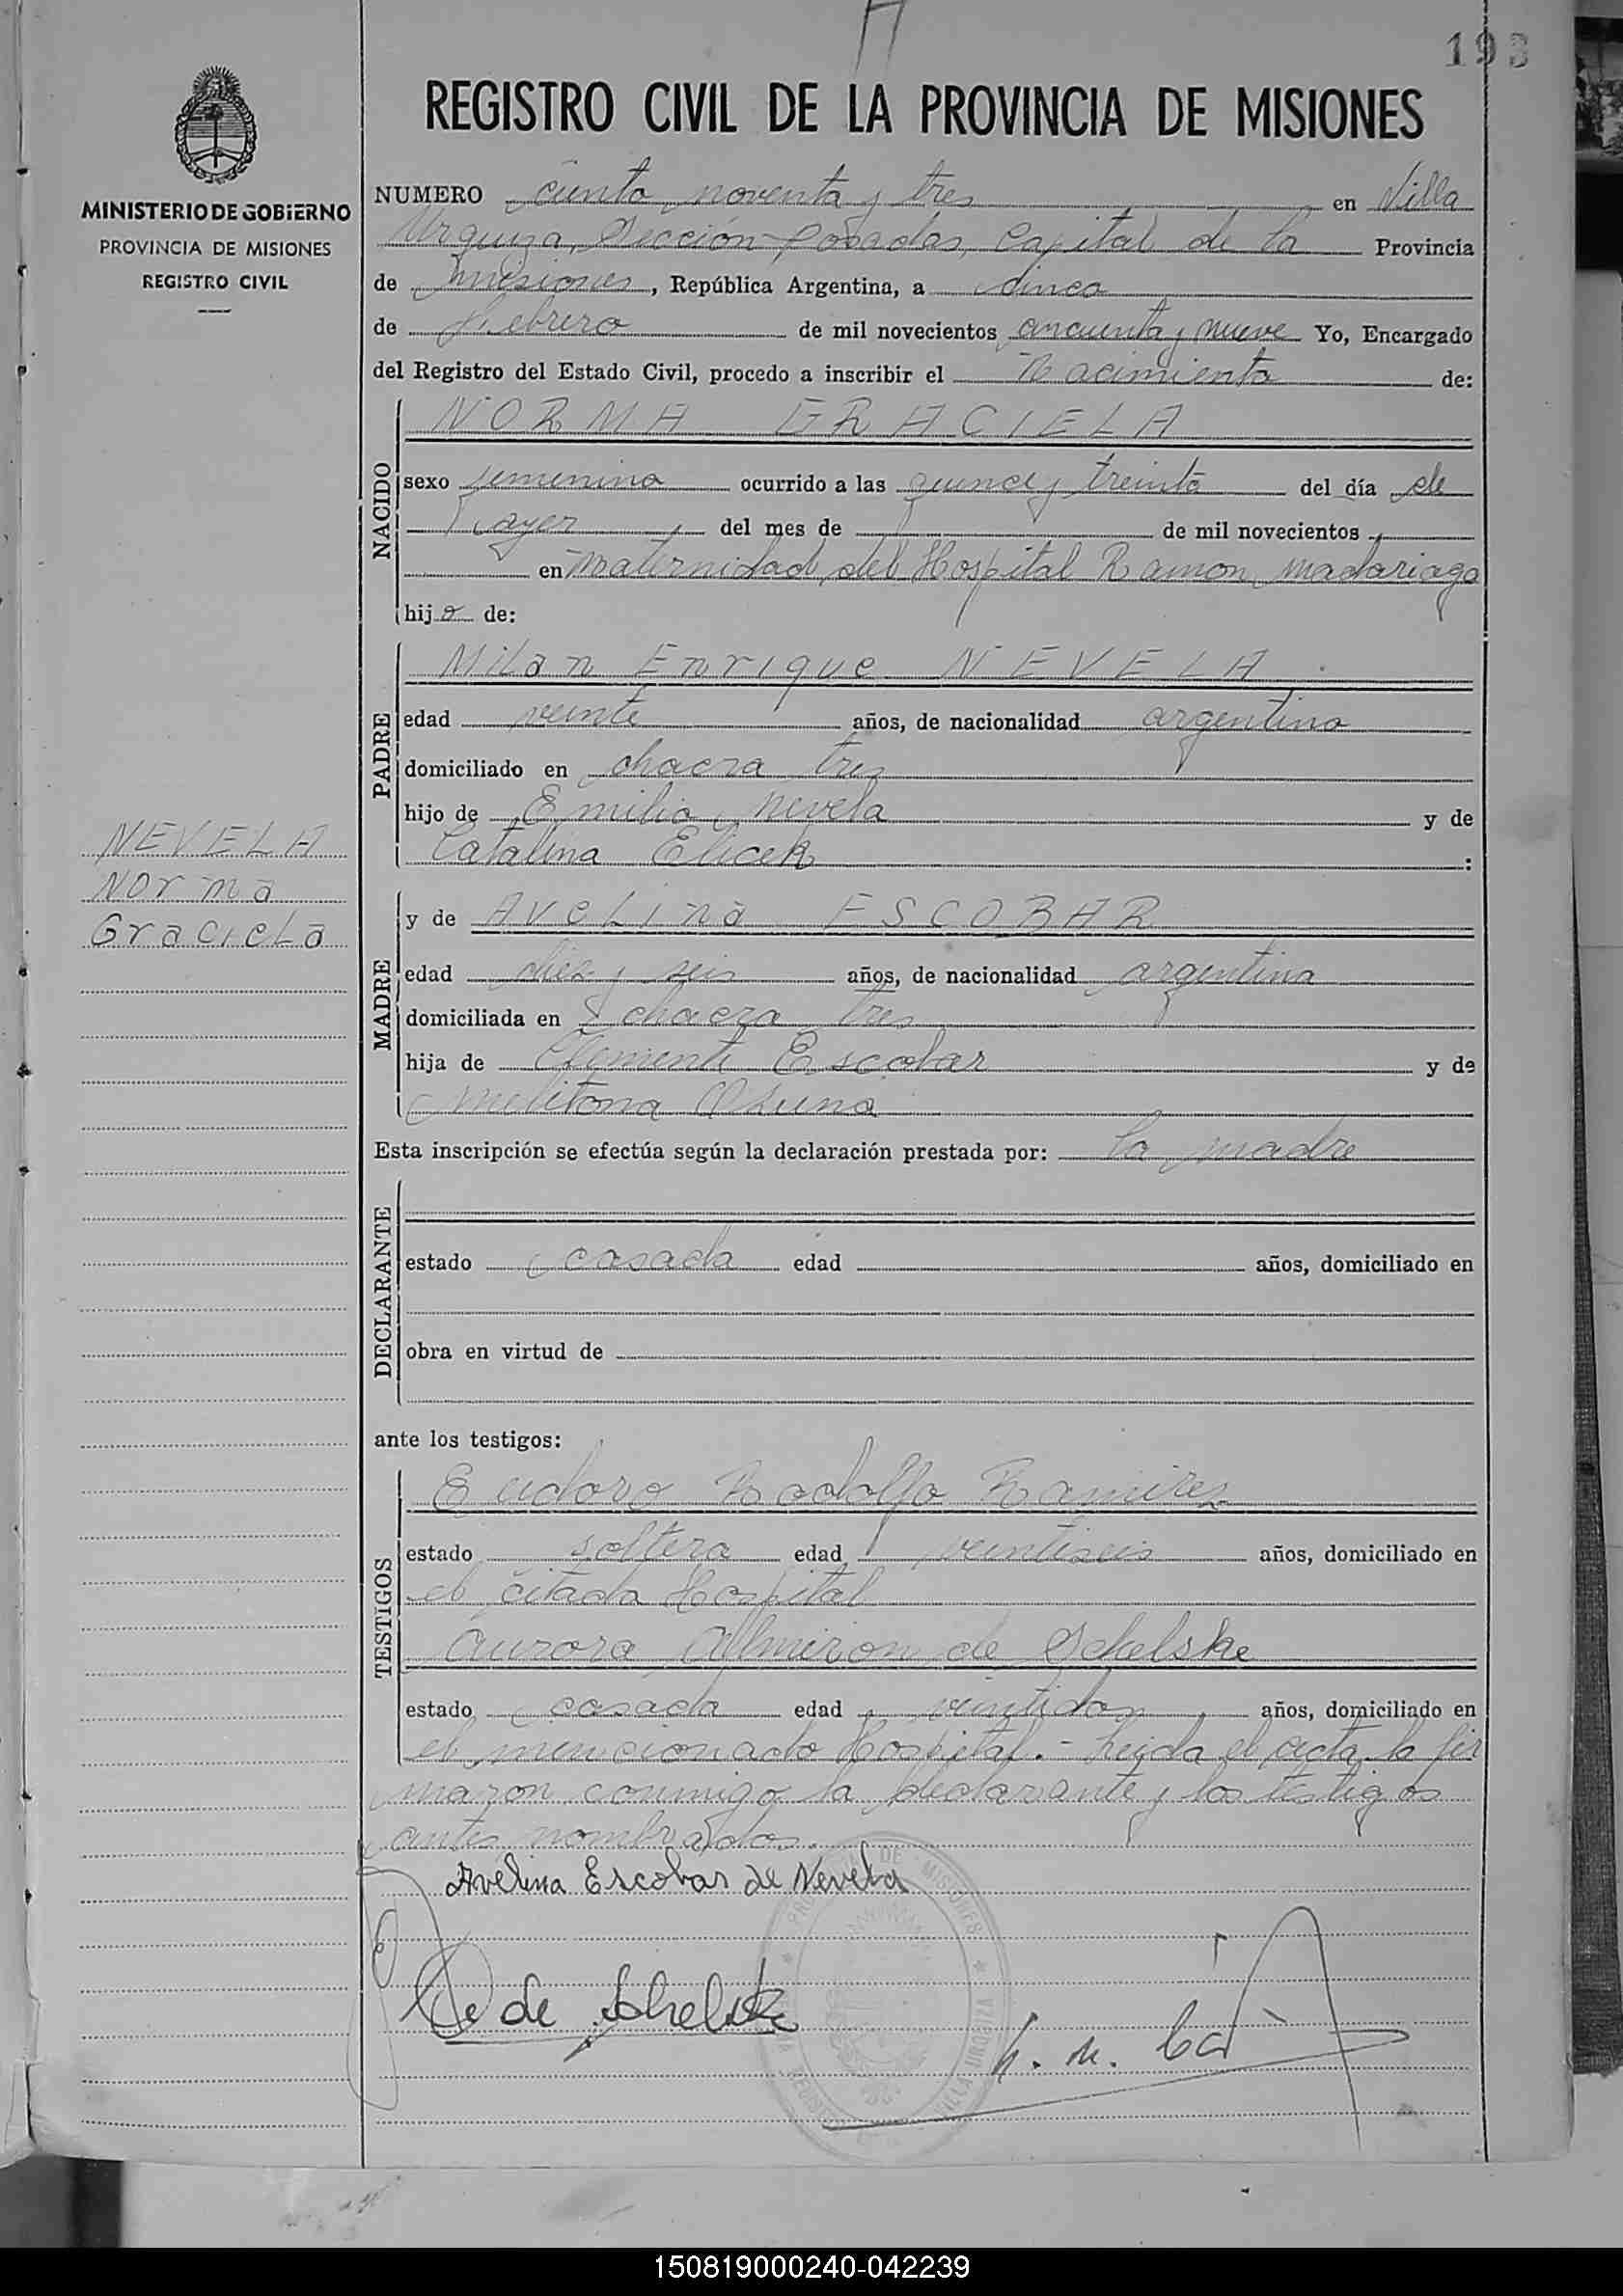 193
REGISTRO CIVIL DE LA PROVINCIA DE MISIONES
MINISTERIO DE GOBIERNO
PROVINCIA DE MISIONES
REGISTRO CIVIL
NUMERO ciento noventa y tres en Villa
Urquiza, Sección Posadas, Capital de la Provincia
de Misiones, República Argentina, a cinco
de Febrero de mil novecientos cincuenta y nueve Yo, Encargado
del Registro del Estado Civil, procedo a inscribir el Nacimiento de:
NACIDO
NORMA GRACIELA
sexo femenino ocurrido a las quince y treinta del día de
ayer del mes de de mil novecientos
en Maternidad del Hospital Ramon Madariaga
hija de:
PADRE
Milan Enrique NEVELA
edad veinte años, de nacionalidad argentino
domiciliado en chacra tres
hijo de Emilio Nevela y de
Catalina Elicek
NEVELA
Norma
Graciela
MADRE
y de Avelina ESCOBAR
edad diez y seis años, de nacionalidad argentina
domiciliada en chacra tres
hija de Clemente Escobar y de
Melitona Osuna
Esta inscripción se efectúa según la declaración prestada por: la madre
DECLARANTE
estado casada edad años, domiciliado en
obra en virtud de
ante los testigos:
TESTIGOS
Eudoro Rodolfo Ramirez
estado soltero edad veintiseis años, domiciliado en
el citado Hospital
Aurora Almiron de Schelske
estado casada edad veintidos años, domiciliado en
el mencionado Hospital.- Leida el acta, la fir
maron conmigo la declarante y los testigos
antes nombrados.
Avelina Escobar de Nevela
de Schelske
VILLA URQUIZA
150819000240-042239